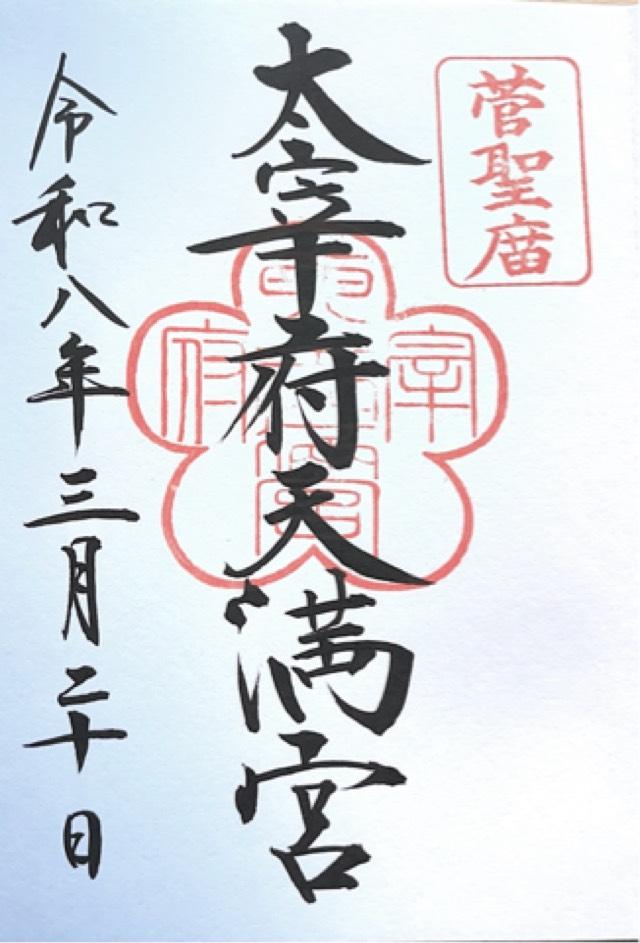 菅聖廟
太宰府天満宮
令和八年三月二十日